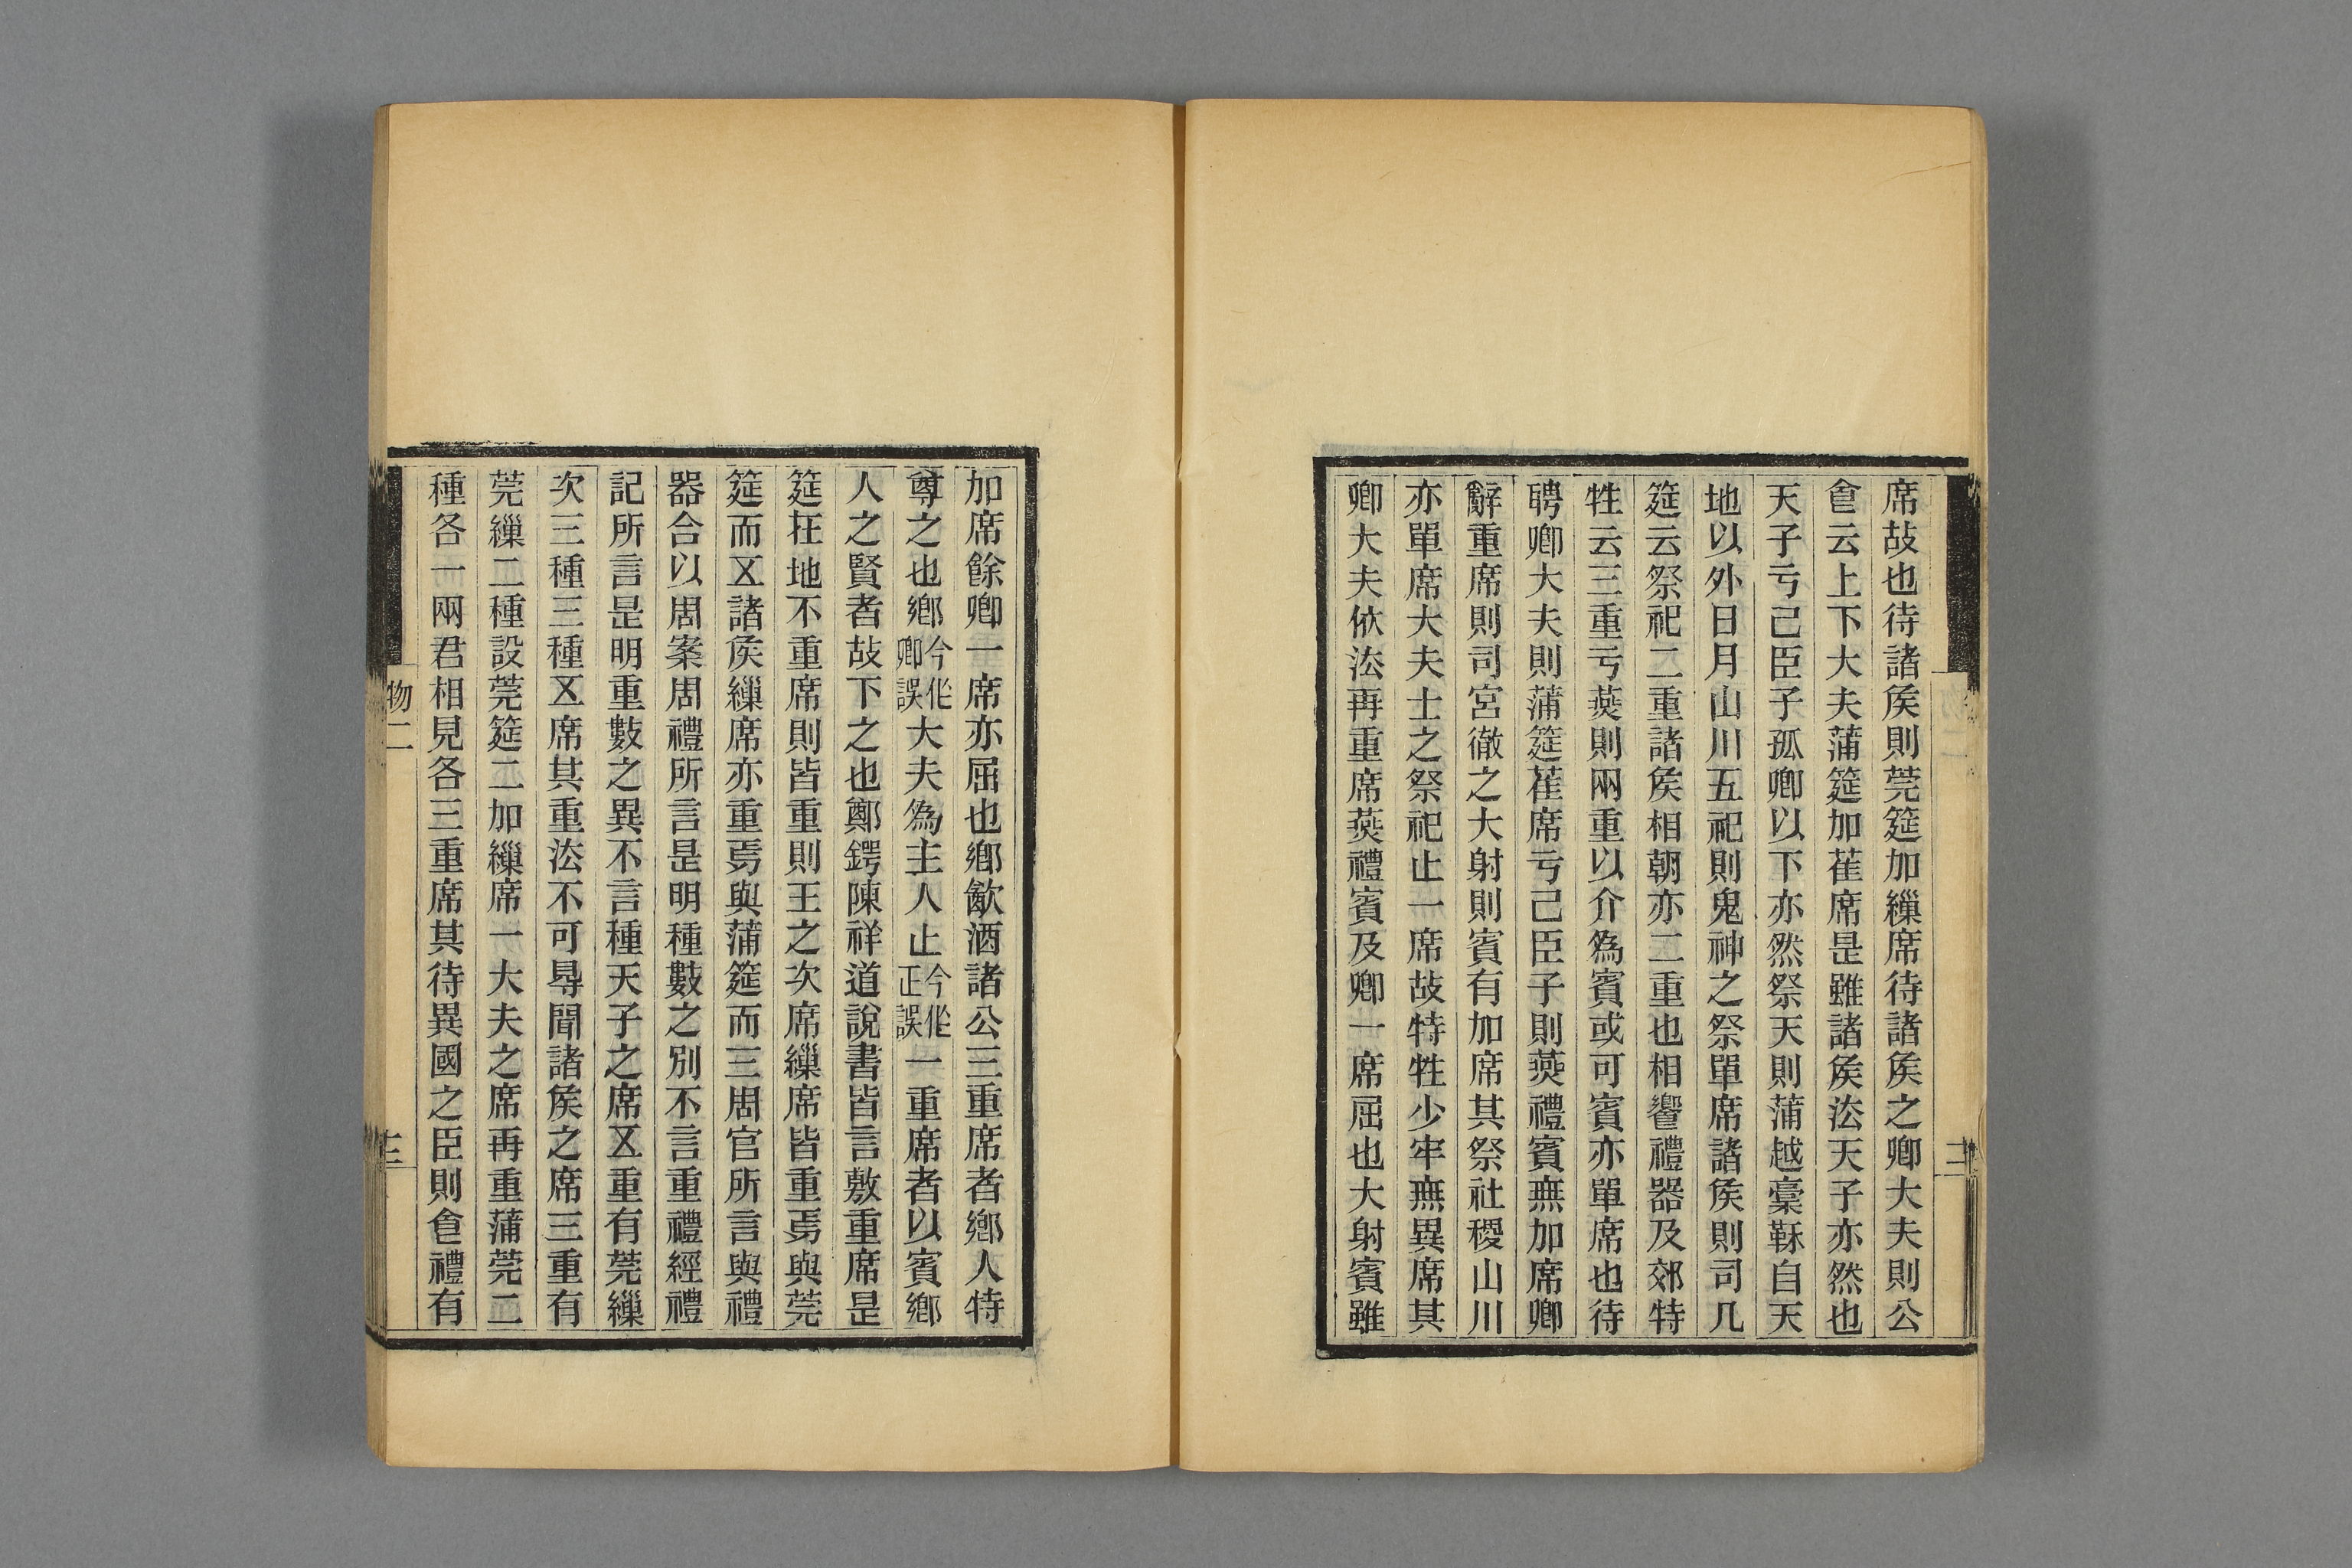 席故也待諸矦則莞筵加繅席待諸矦之卿大夫則公
㑹云上下大夫蒲筵加萑席是雖諸矦法天子亦然也
天子亏己臣子孤卿以下亦然祭天則蒲越槀鞂自天
地以外日月山川五祀則鬼神之祭單席諸矦則司几
筵云祭祀二重諸矦相朝亦二重也相響禮器及郊特
牲云三重亏燕則兩重以介爲賓或可賓亦單席也待
聘卿大夫則蒲筵萑席亏己臣子則燕禮賓無加席卿
辭重席則司宮徹之大射則賓有加席其祭社稷山川
亦單席大夫士之祭祀止一席故特牲少牢無異席其
卿大夫依法再重席燕禮賓及卿一席屈也大射賓雖
二
加席餘卿一席亦屈也鄉歓酒諸公三重席者鄉人特
尊之也鄉今作卿誤大夫爲主人止今作正誤一重席者以賓鄉
人之賢者故下之也鄭鍔陳祥道說書皆言敷重席是
筵在地不重席則皆重則王之次席繅席皆重焉與莞
筵而㐅諸矦繅席亦重焉與蒲筵而三周官所言與禮
器合以周案周禮所言是明種數之別不言重禮經禮
記所言是明重數之異不言種天子之席㐅重有莞繅
次三種三種㐅席其重法不可㝵聞諸矦之席三重有
莞繅二種設莞筵二加繅席一大夫之席再重蒲莞二
種各一兩君相見各三重席其待異國之臣則㑹禮有
物二
三